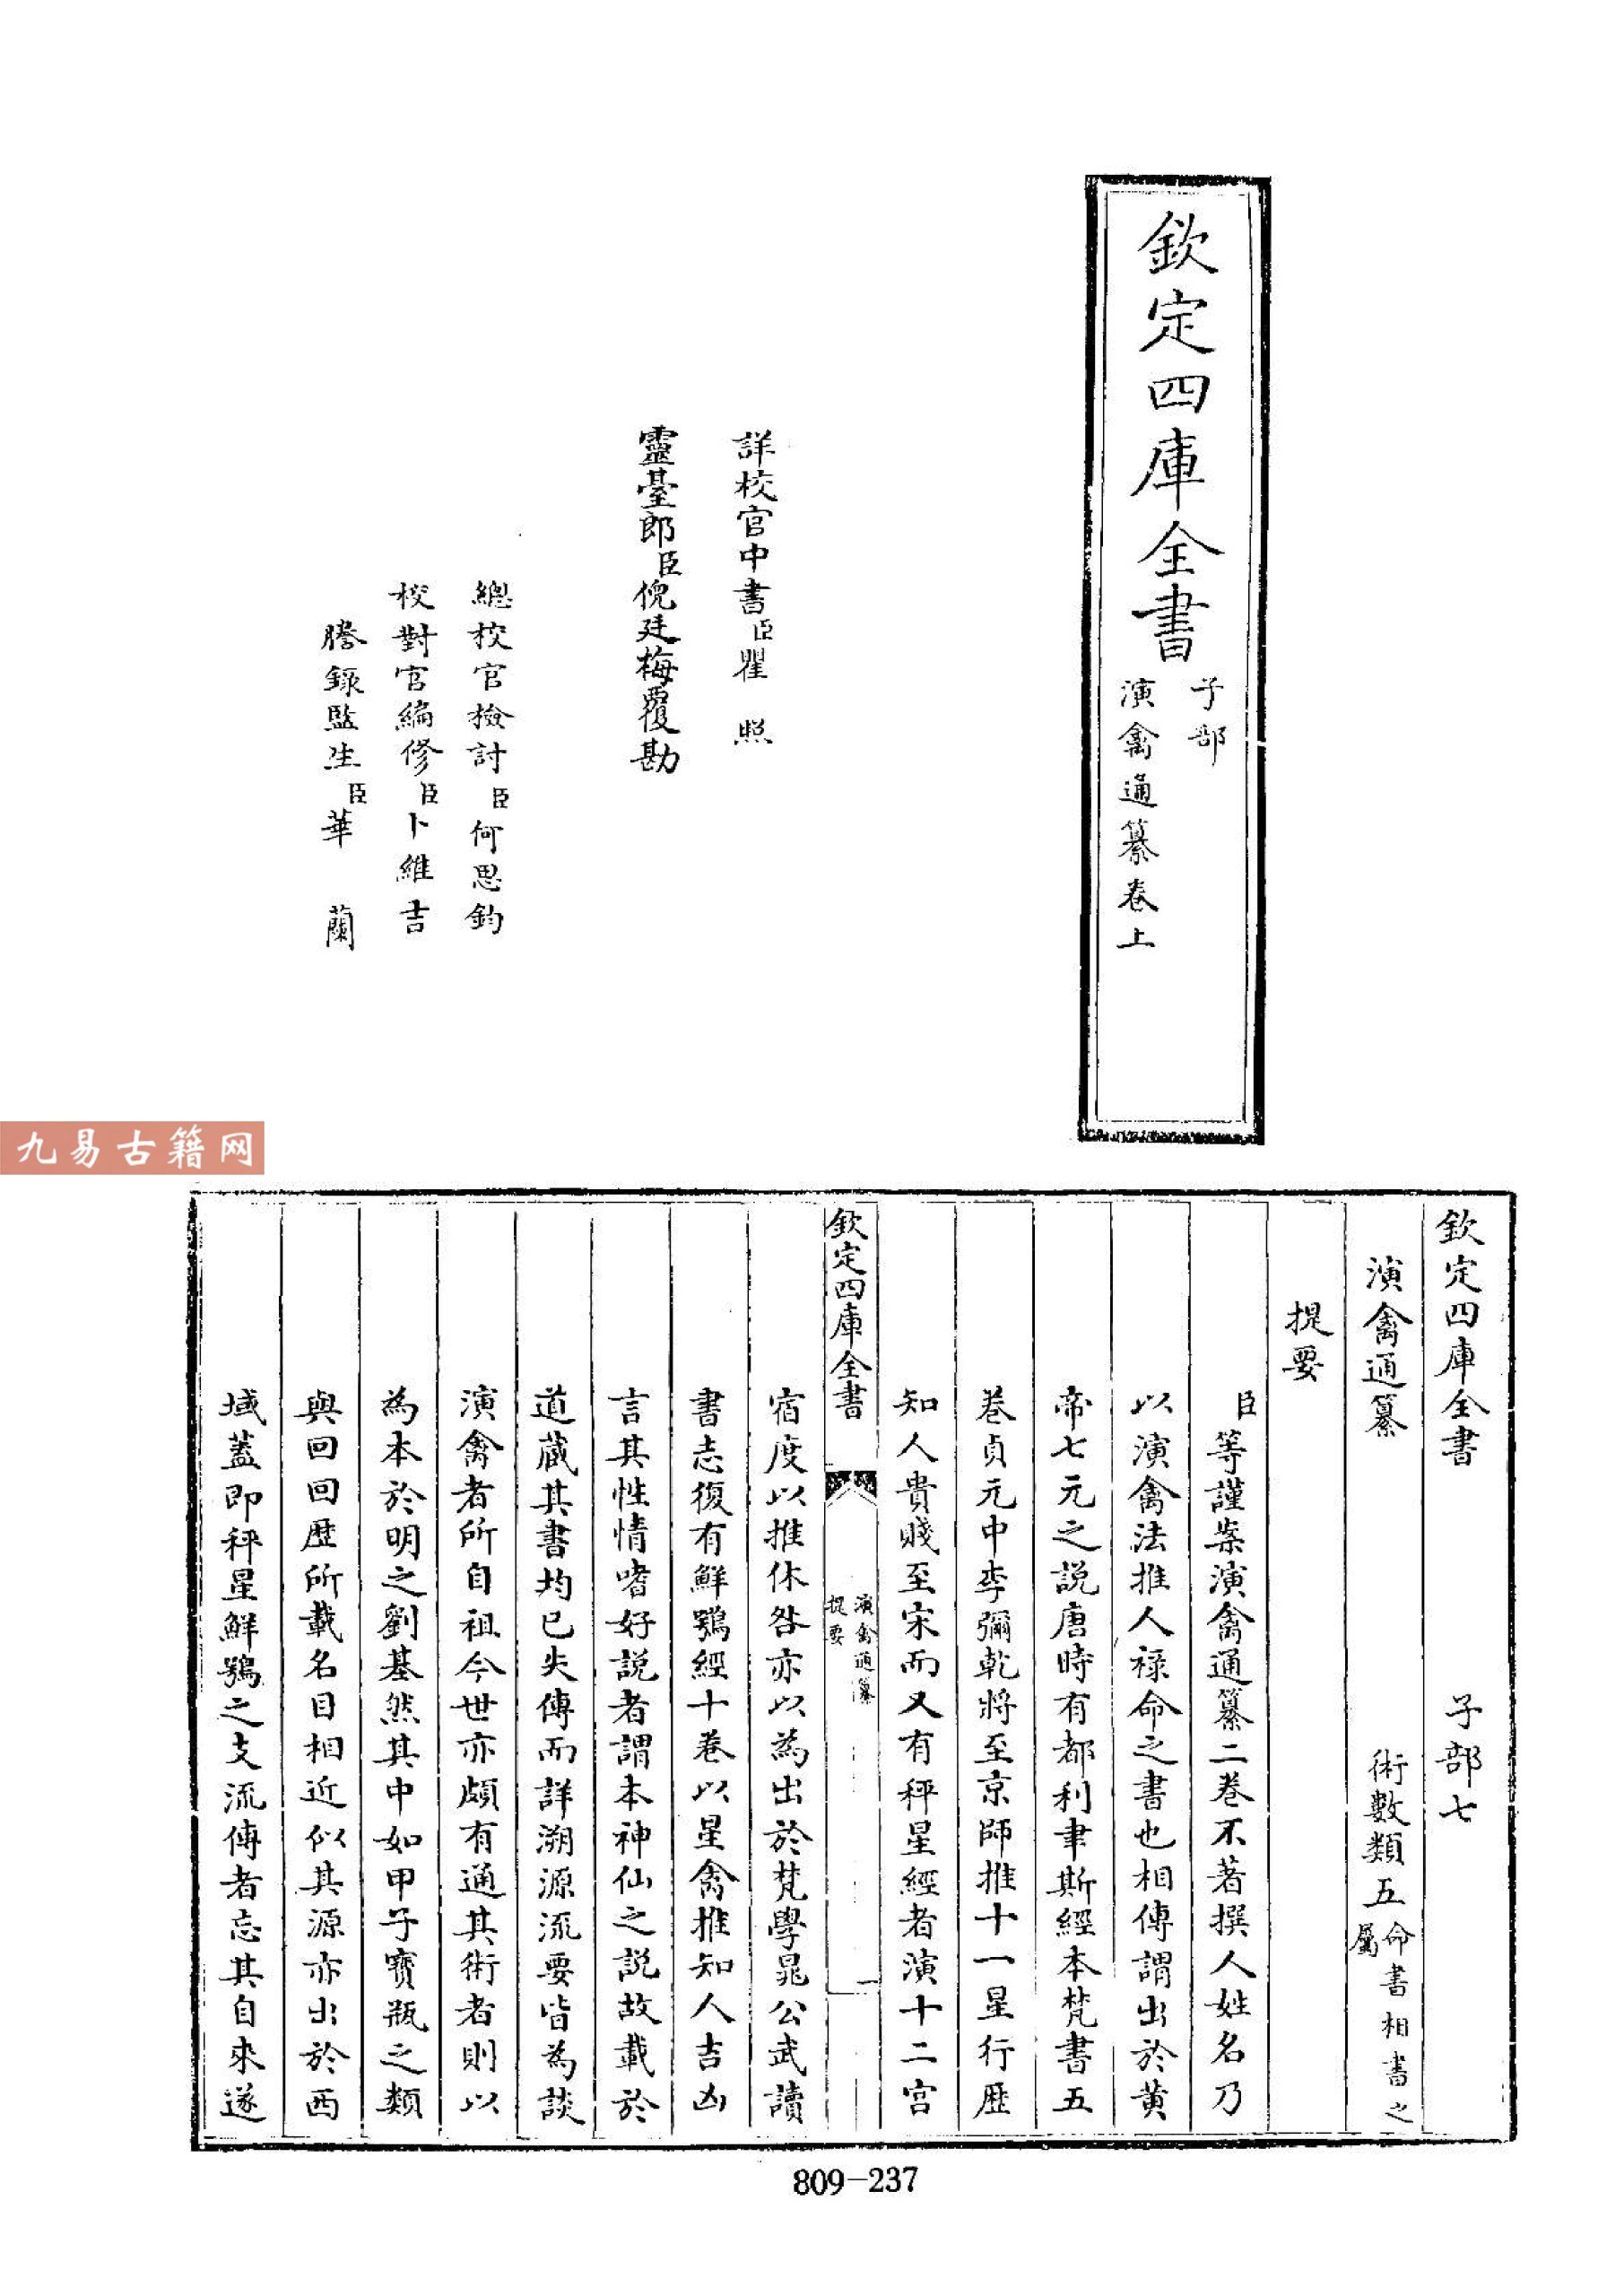 欽定四庫全書
子部
演禽通纂卷上
詳校官中書臣瞿照
靈臺郎臣倪廷梅覆勘
總校官檢討臣何思鈞
校對官編修臣卜維吉
謄錄監生臣華蘭
九易古籍网
欽定四庫全書 子部七
演禽通纂 術數類五命書相書之屬
提要
臣等謹案演禽通纂二卷不著撰人姓名乃
以演禽法推人祿命之書也相傳謂出於黃
帝七元之說唐時有都利聿斯經本梵書五
卷貞元中李彌乾將至京師推十一星行歴
知人貴賤至宋而又有秤星經者演十二宮
欽定四庫全書
演禽通纂
提要
一
宿度以推休咎亦以為出於梵學晁公武讀
書志復有鮮鶚經十卷以星禽推知人吉凶
言其性情嗜好說者謂本神仙之說故載於
道藏其書均已失傳而詳溯源流要皆為談
演禽者所自祖今世亦頗有通其術者則以
為本於明之劉基然其中如甲子寶瓶之類
與回回歴所載名目相近似其源亦出於西
域蓋即秤星鮮鶚之支流傳者忘其自來遂
809-237